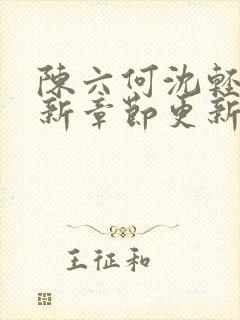 陳六何沈輕
新章節更新
王征和